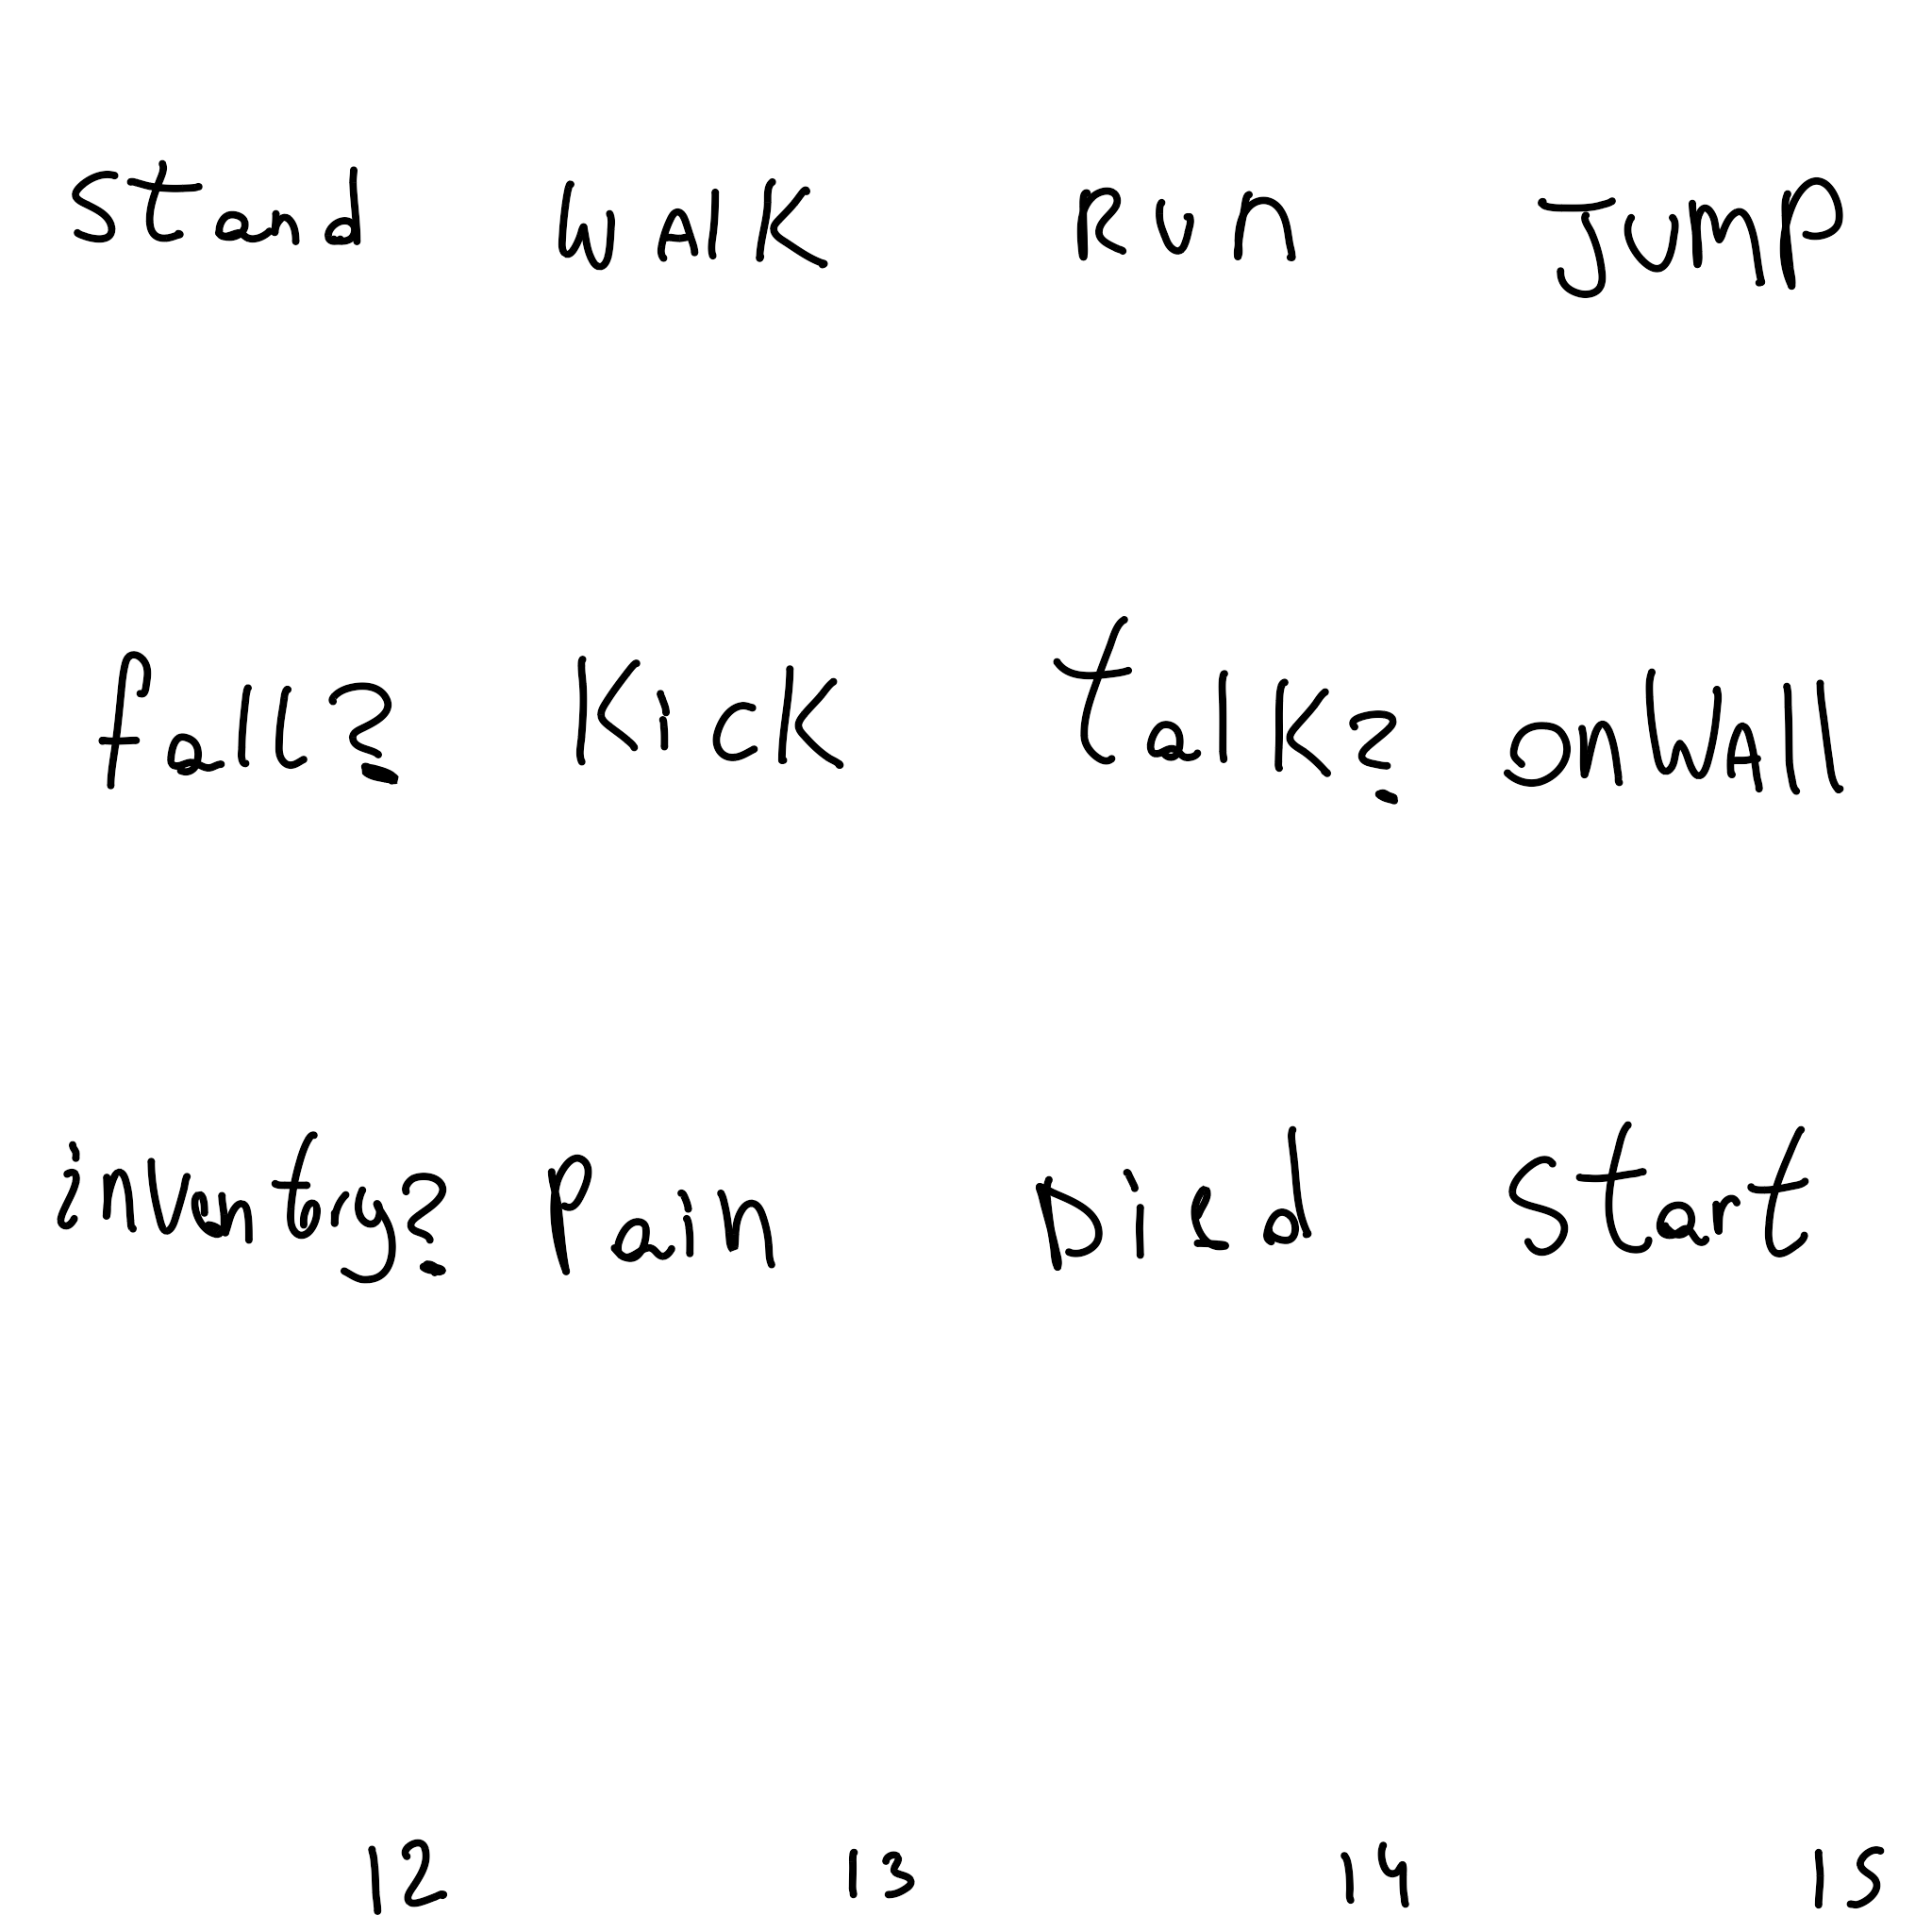 Stand WAlK RUn JUMP
fall? Kick talk? onWAll
invantory? Pain Died Start
12 13 14 15